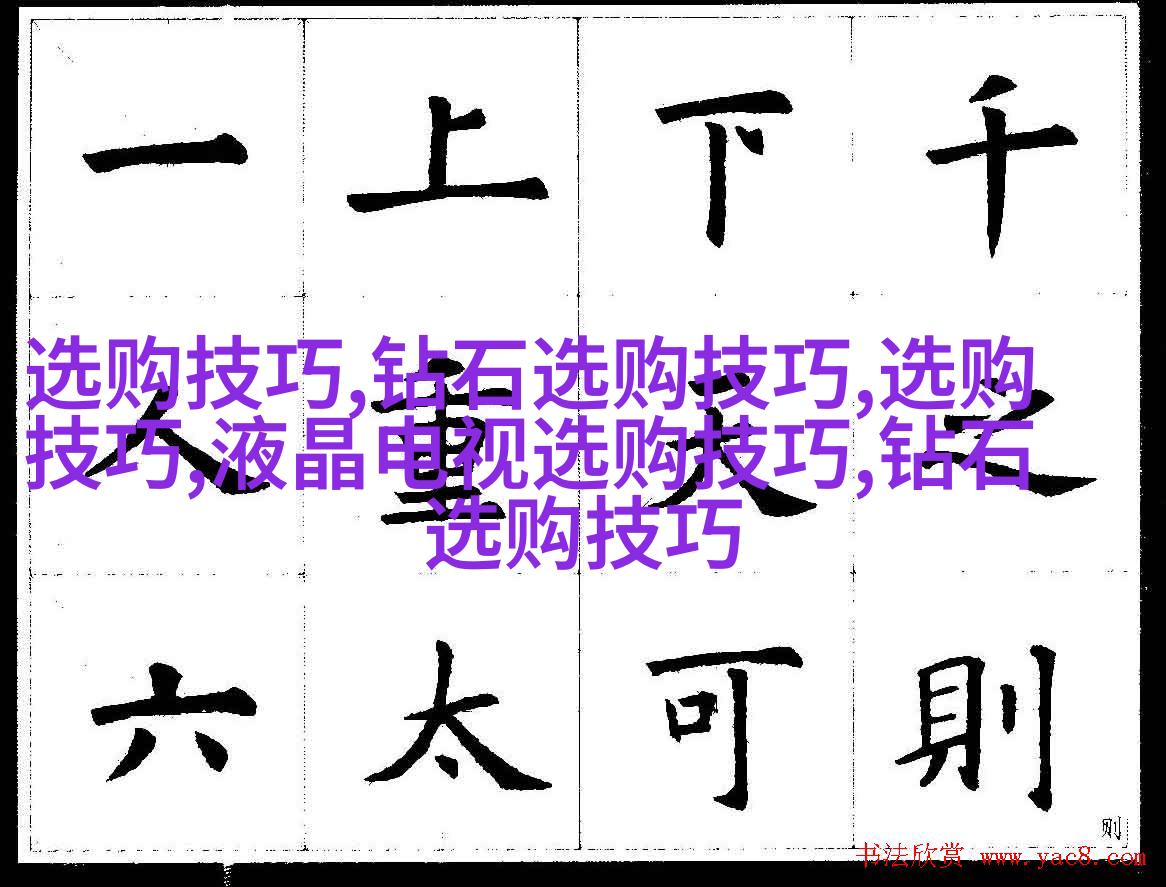 一 上 下 千
选购技巧,钻石选购技巧,选购
技巧,液晶电视选购技巧,钻石
选购技巧
人 重 大 之
六 太 可 則
则
书法欣赏 www.yac8.com